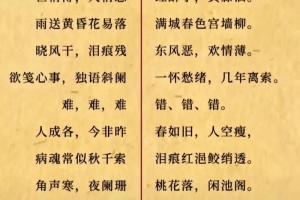 雨送黄昏花易落
晓风干，泪痕残
欲笺心事，独语斜阑
难，难，难
人成各，今非昨
病魂常似秋千索
角声寒，夜阑珊
满城春色宫墙柳。
东风恶，欢情薄。
一怀愁绪，几年离索。
错、错、错。
春如旧，人空瘦，
泪痕红浥鲛绡透。
桃花落，闲池阁。